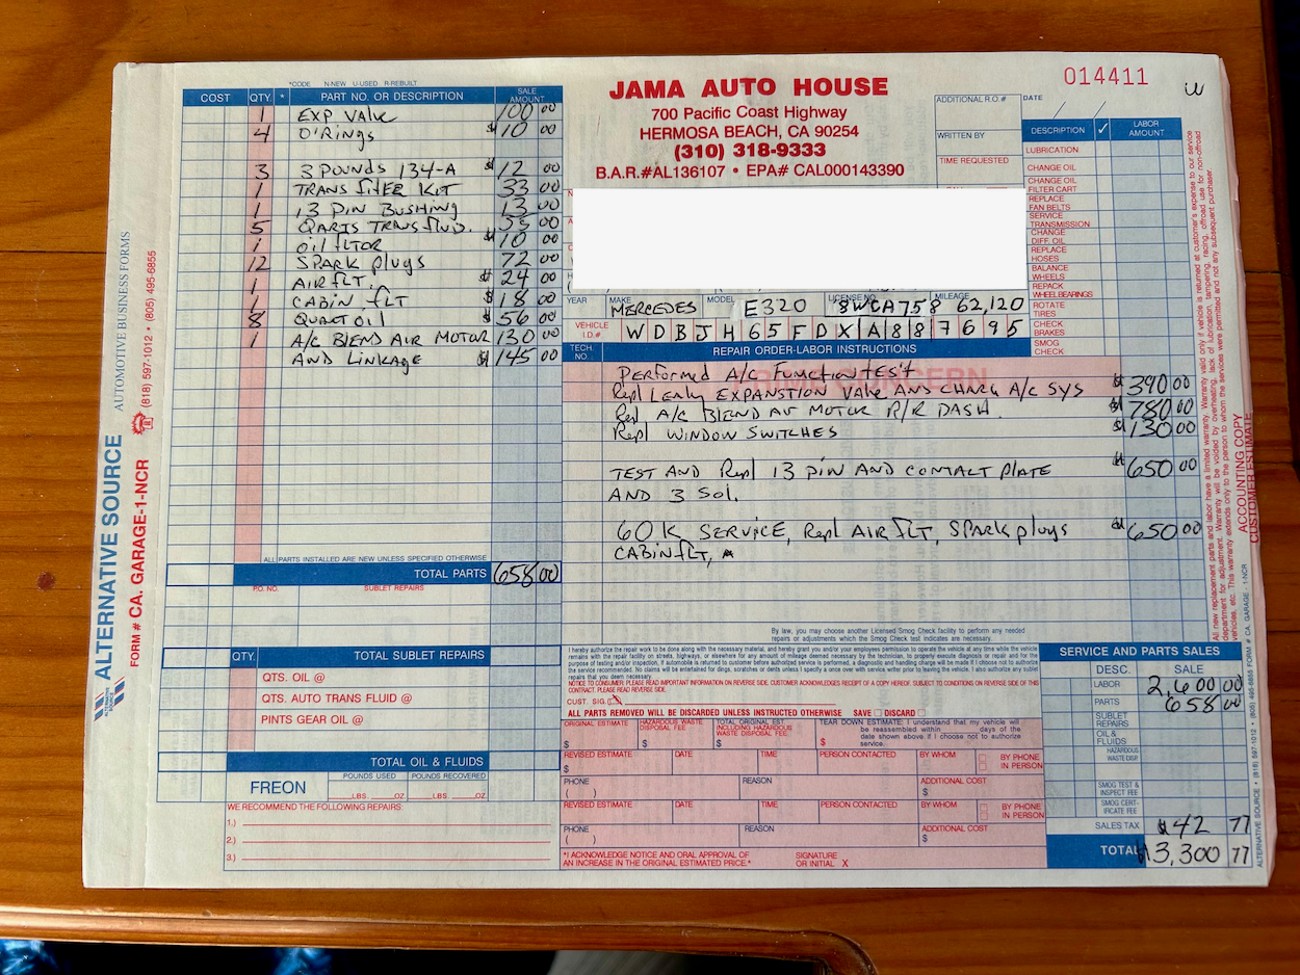 *CODE N-NEW U-USED R-REBUILT
COST QTY. * PART NO. OR DESCRIPTION SALE AMOUNT
1 EXP Valve 100 00
4 O'Rings $10 00
3 3 POUNDS 134-A $12 00
1 TRANS filtER KIT 33 00
1 13 PIN BUSHING 13 00
5 QARTS TRANS fluid. 35 00
1 Oil fltOR $10 00
12 SPARK plugs 72 00
1 AIR flt. $24 00
1 CABIN flt $18 00
8 QUART oil $56 00
1 A/C BLEND AIR MOTOR 130 00
AND LINKAGE $145 00
ALL PARTS INSTALLED ARE NEW UNLESS SPECIFIED OTHERWISE
TOTAL PARTS 658 00
P.O. NO. SUBLET REPAIRS
QTY. TOTAL SUBLET REPAIRS
QTS. OIL @
QTS. AUTO TRANS FLUID @
PINTS GEAR OIL @
TOTAL OIL & FLUIDS
FREON POUNDS USED POUNDS RECOVERED
LBS. OZ LBS. OZ
WE RECOMMEND THE FOLLOWING REPAIRS:
1.)
2.)
3.)
ALTERNATIVE SOURCE AUTOMOTIVE BUSINESS FORMS
FORM # CA. GARAGE-1-NCR (818) 597-1012 • (805) 495-6855
JAMA AUTO HOUSE
700 Pacific Coast Highway
HERMOSA BEACH, CA 90254
(310) 318-9333
B.A.R.#AL136107 • EPA# CAL000143390
014411
ADDITIONAL R.O.# DATE
WRITTEN BY
TIME REQUESTED
YEAR MAKE MODEL LICENSE NO. MILEAGE
MERCEDES E320 8WCA758 62,120
VEHICLE I.D.# WDBJH65FDXA887695
DESCRIPTION ✓ LABOR AMOUNT
LUBRICATION
CHANGE OIL
CHANGE OIL FILTER CART
REPLACE FAN BELTS
SERVICE TRANSMISSION
CHANGE DIFF. OIL
REPLACE HOSES
BALANCE WHEELS
REPACK WHEEL BEARINGS
ROTATE TIRES
CHECK BRAKES
SMOG CHECK
TECH. NO. REPAIR ORDER-LABOR INSTRUCTIONS
PERFORMED A/C FUNCTION tESt
Repl Leaky EXPANSTION Valve AND CHARG A/C SYS $390 00
Repl A/C BLEND AIR MOTOR R/R DASH. $780 00
Repl WINDOW SWITCHES $130 00
TEST AND Repl 13 pin AND CONTACT plATE $650 00
AND 3 Sol.
60K SERVICE, Repl AIR flt, SPARK plugs $650 00
CABIN flt,
By law, you may choose another Licensed Smog Check facility to perform any needed
repairs or adjustments which the Smog Check test indicates are necessary.
I hereby authorize the repair work to be done along with the necessary material, and hereby grant you and/or your employees permission to operate the vehicle
NOTICE TO CONSUMER: PLEASE READ IMPORTANT INFORMATION ON REVERSE SIDE. CUSTOMER ACKNOWLEDGES RECEIPT OF A COPY HEREOF. SUBJECT TO CONDITIONS ON REVERSE SIDE OF THIS
CONTRACT. PLEASE READ REVERSE SIDE.
CUST. SIG. X
ALL PARTS REMOVED WILL BE DISCARDED UNLESS INSTRUCTED OTHERWISE SAVE DISCARD
ORIGINAL ESTIMATE $ HAZARDOUS WASTE DISPOSAL FEE $ TOTAL ORIGINAL EST. INCLUDING HAZARDOUS WASTE DISPOSAL FEE $
TEAR DOWN ESTIMATE: I understand that my vehicle will be reassembled within days of the date shown above if I choose not to authorize service. $
REVISED ESTIMATE $ DATE TIME PERSON CONTACTED BY WHOM BY PHONE IN PERSON
PHONE ( ) REASON ADDITIONAL COST $
REVISED ESTIMATE DATE TIME PERSON CONTACTED BY WHOM BY PHONE IN PERSON
PHONE ( ) REASON ADDITIONAL COST $
*I ACKNOWLEDGE NOTICE AND ORAL APPROVAL OF
AN INCREASE IN THE ORIGINAL ESTIMATED PRICE.* SIGNATURE OR INITIAL X
SERVICE AND PARTS SALES
DESC. SALE
LABOR 2,600 00
PARTS 658 00
SUBLET REPAIRS
OIL & FLUIDS
HAZARDOUS WASTE DISP.
SMOG TEST & INSPECT FEE
SMOG CERTIFICATE FEE
SALES TAX $42 77
TOTAL $3,300 77
ACCOUNTING COPY
CUSTOMER ESTIMATE
ALTERNATIVE SOURCE • (818) 597-1012 • (805) 495-6855 FORM # CA. GARAGE - 1-NCR